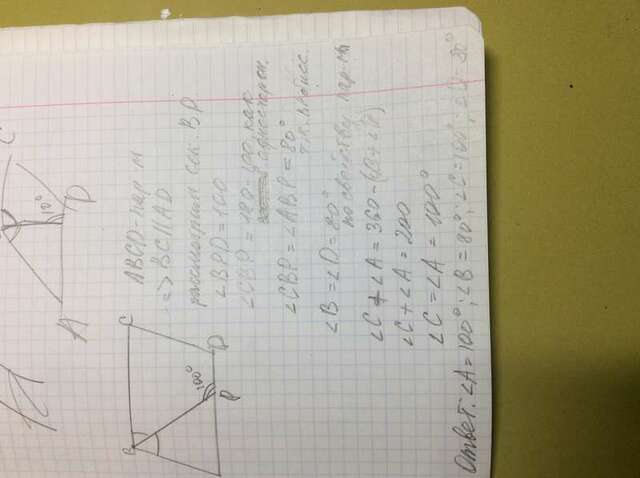 C
10°
A
D
B
C
100°
P
D
ABCD - пар-м
=> BC || AD
рассмотрим сек. BP
∠BPD = 100
∠CBP = 180-100, как
односторон.
∠CBP = ∠ABP = 80°
т.к. BP бисс.
∠B = ∠D = 80°
по свойству пар-ма
∠C + ∠A = 360 - (∠B + ∠D)
∠C + ∠A = 200
∠C = ∠A = 100°
Ответ: ∠A = 100°; ∠B = 80°; ∠C = 100°; ∠D = 80°